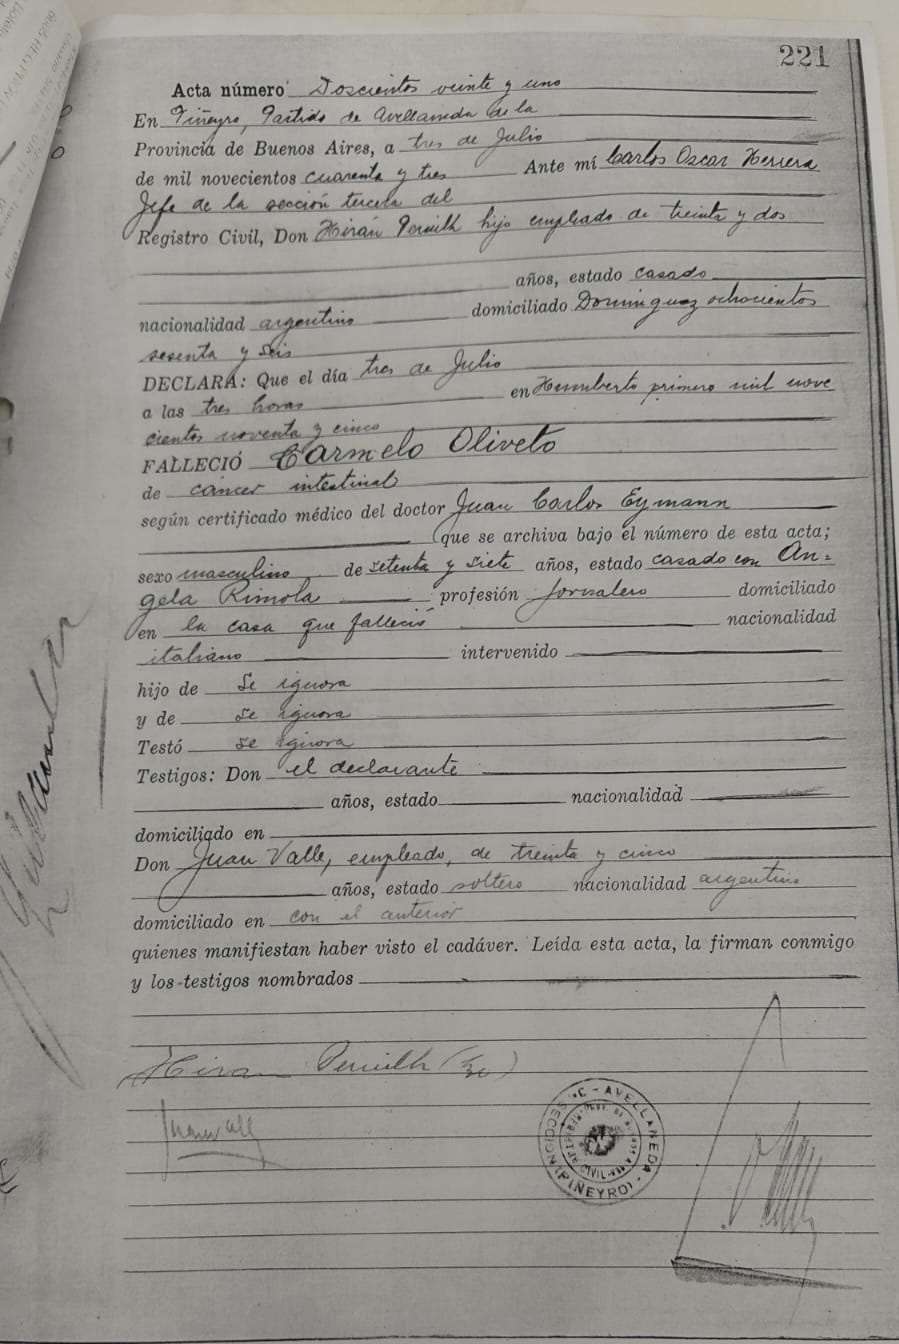 221
Acta número Doscientos veinte y uno
En Piñeyro, Partido de Avellaneda de la
Provincia de Buenos Aires, a tres de Julio
de mil novecientos cuarenta y tres Ante mí Carlos Oscar Herrera
Jefe de la sección tercera del
Registro Civil, Don Hirán Pervilh hijo empleado de treinta y dos
años, estado casado
nacionalidad argentino domiciliado Dominguez ochocientos
sesenta y seis
DECLARA: Que el día tres de Julio
a las tres horas en Humberto primero mil nove
cientos noventa y cinco
FALLECIÓ Carmelo Oliveto
de cáncer intestinal
según certificado médico del doctor Juan Carlos Eymann
(que se archiva bajo el número de esta acta;
sexo masculino de setenta y siete años, estado casado con An=
gela Rimola profesión jornalero domiciliado
en la casa que falleció nacionalidad
italiano intervenido
hijo de Se ignora
y de se ignora
Testó se ignora
Testigos: Don el declarante
años, estado nacionalidad
domiciliado en
Don Juan Valle, empleado, de treinta y cinco
años, estado soltero nacionalidad argentino
domiciliado en con el anterior
quienes manifiestan haber visto el cadáver. Leída esta acta, la firman conmigo
y los testigos nombrados
Hiran Pervilh (h)
Juan Valle
SECCION 3ª C - AVELLANEDA - (PIÑEYRO)